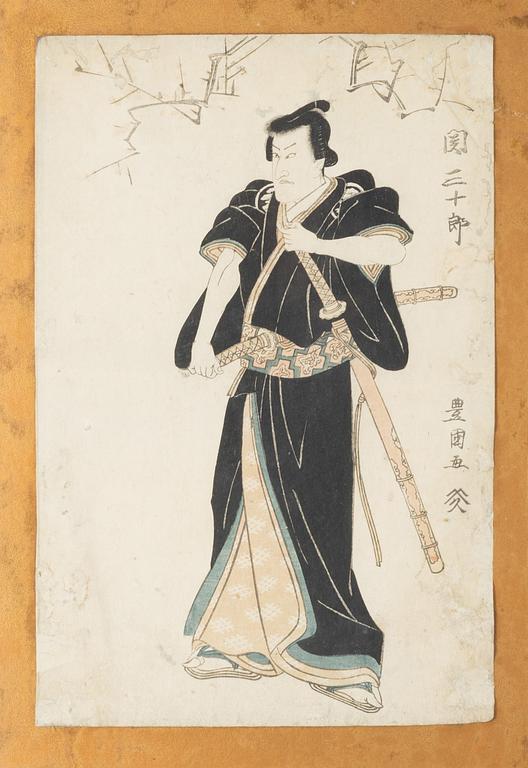 関三十郎
豊國画